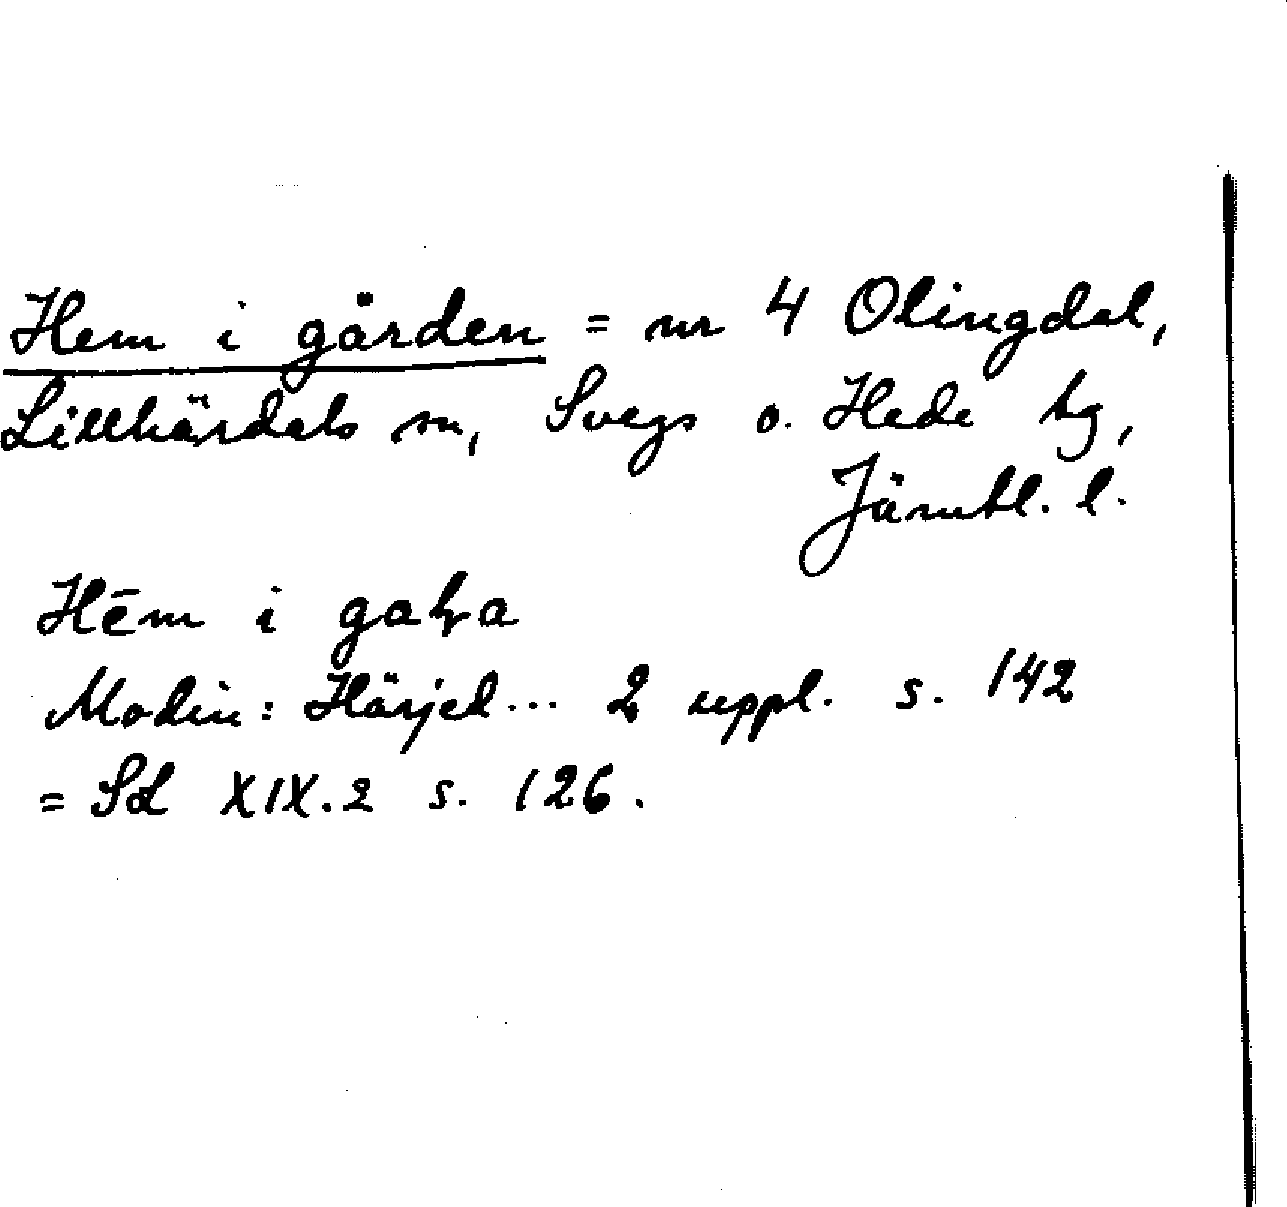 Hem i gården = nr 4 Olingdal,
Lillhärdals sn, Svegs o. Hede tg,
Jämtl. l.
Hēm i
Modin: Härjed... 2 uppl. s. 142
= SL XIX.2 s. 126.